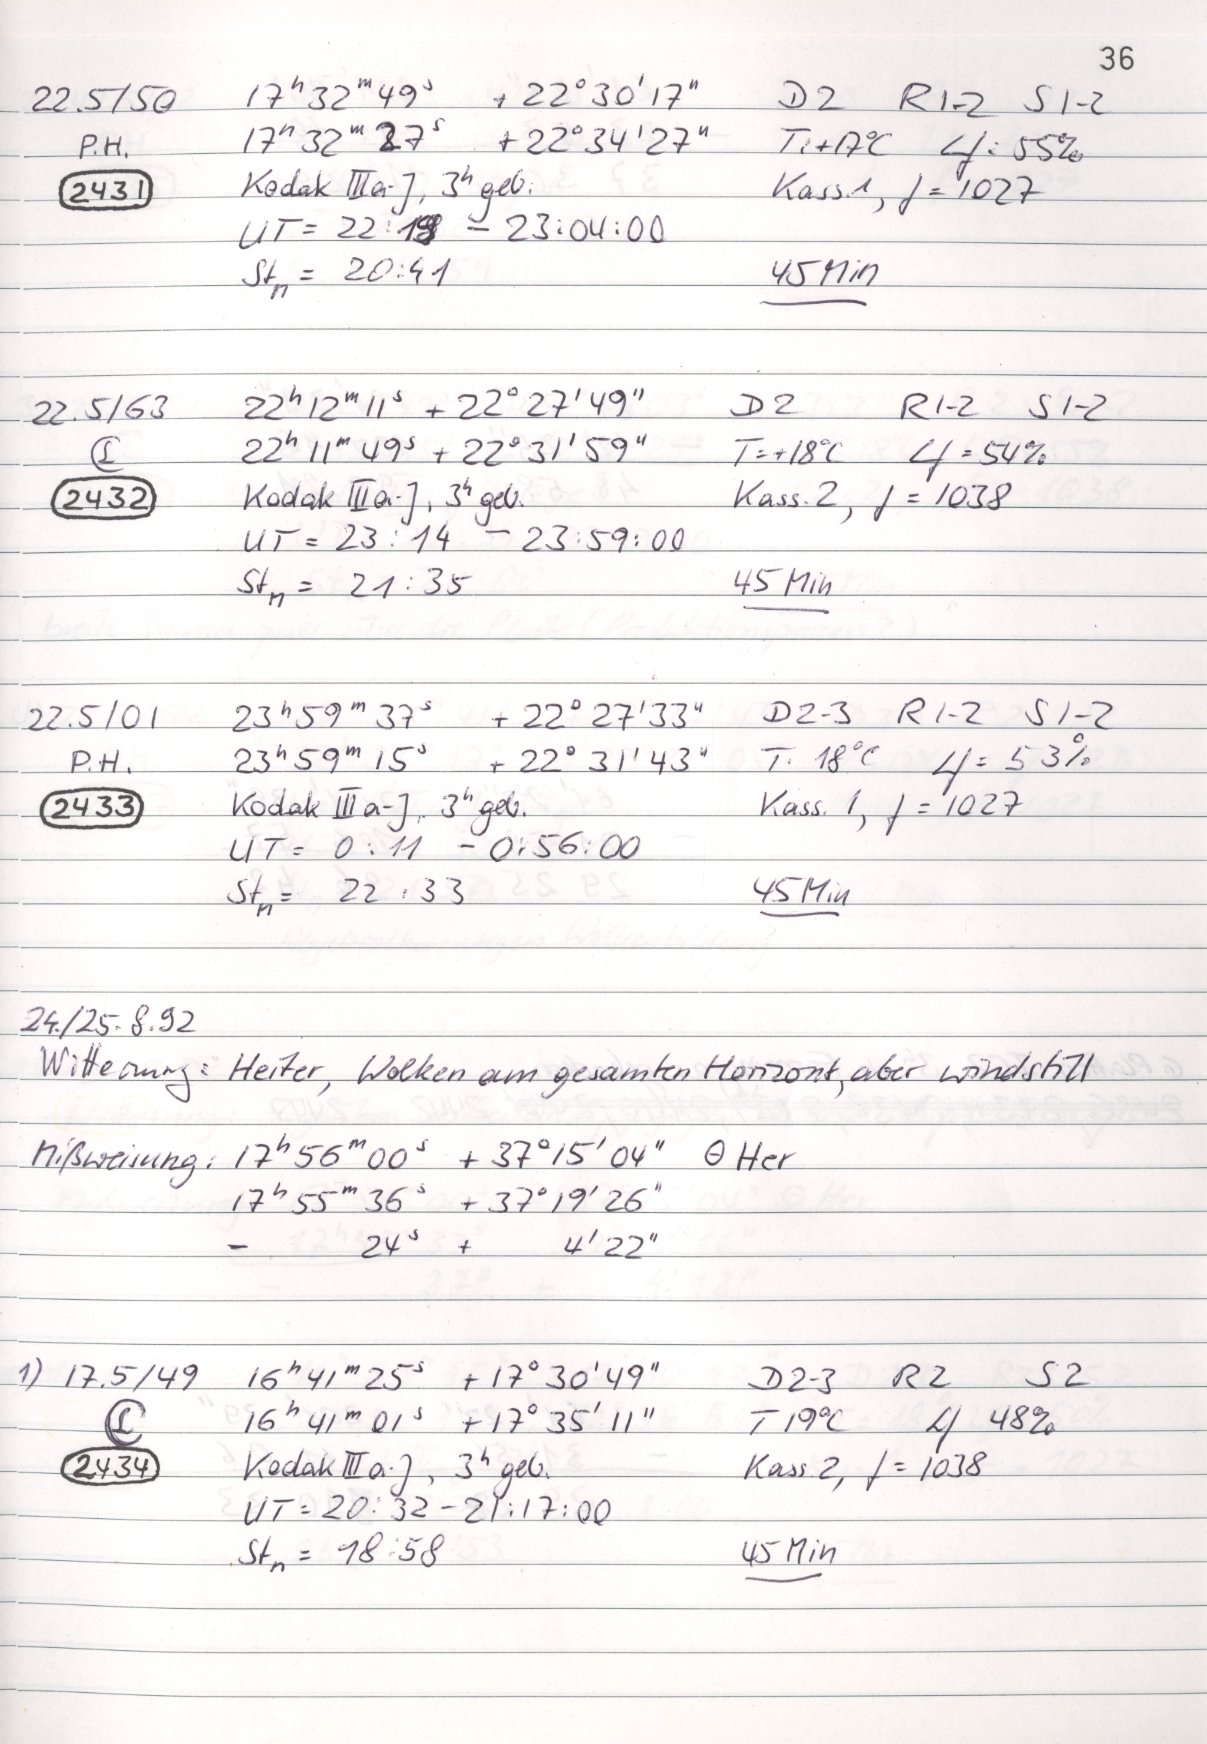 36
22.5/50 17ʰ32ᵐ49ˢ +22°30'17" D2 R1-2 S1-2
P.H. 17ʰ32ᵐ27ˢ +22°34'27" T:+17°C Lf: 55%
2431 Kodak IIIa-J, 3ʰ geb. Kass. 1, f = 1027
UT = 22:19 - 23:04:00
Stₙ = 20:41 45 Min
22.5/63 22ʰ12ᵐ11ˢ +22°27'49" D2 R1-2 S1-2
22ʰ11ᵐ49ˢ +22°31'59" T=+18°C Lf = 54%
2432 Kodak IIIa-J, 3ʰ geb. Kass. 2, f = 1038
UT = 23:14 - 23:59:00
Stₙ = 21:35 45 Min
22.5/01 23ʰ59ᵐ37ˢ +22°27'33" D2-3 R1-2 S1-2
P.H. 23ʰ59ᵐ15ˢ +22°31'43" T. 18°C Lf = 53%
2433 Kodak IIIa-J, 3ʰ geb. Kass. 1, f = 1027
UT = 0:11 - 0:56:00
Stₙ = 22:33 45 Min
24./25.8.92
Witterung: Heiter, Wolken am gesamten Horizont, aber windstill
Mißweisung: 17ʰ56ᵐ00ˢ +37°15'04" Θ Her
17ʰ55ᵐ36ˢ +37°19'26"
- 24ˢ + 4'22"
1) 17.5/49 16ʰ41ᵐ25ˢ +17°30'49" D2-3 R2 S2
16ʰ41ᵐ01ˢ +17°35'11" T 19°C Lf 48%
2434 Kodak IIIa-J, 3ʰ geb. Kass 2, f = 1038
UT = 20:32 - 21:17:00
Stₙ = 18:58 45 Min